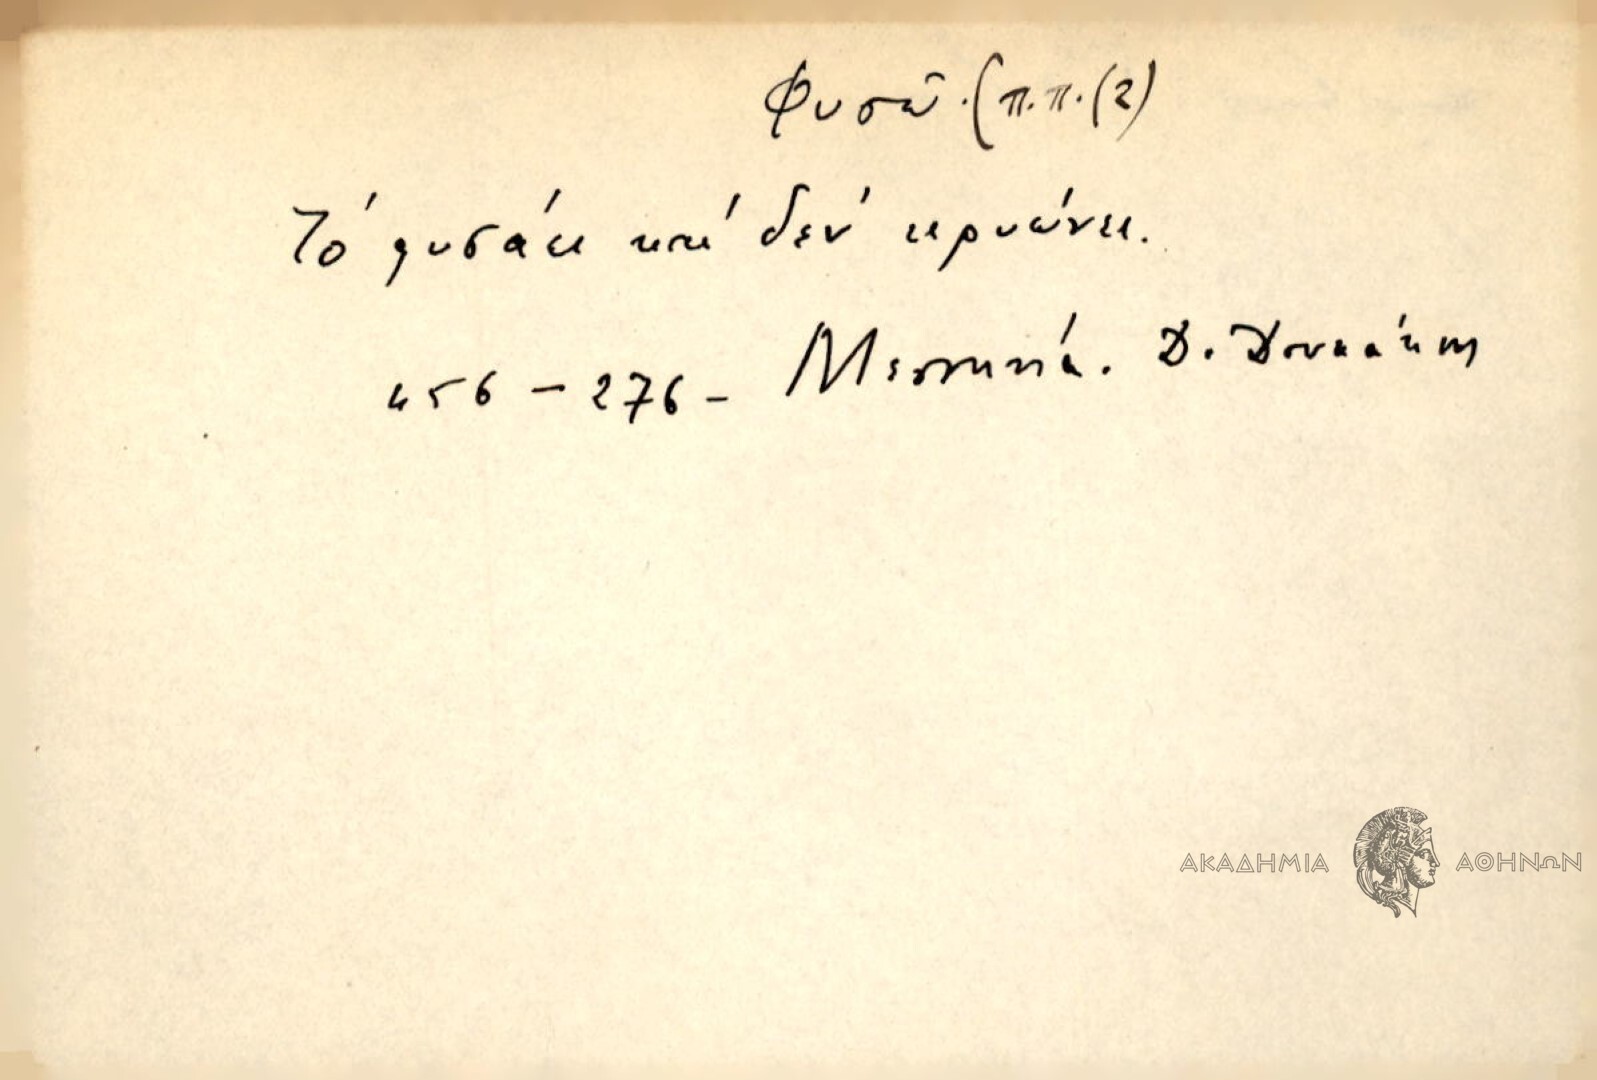 Φυσῶ. (π.π. (2)
Τό φυσάει καί δέν κρυώνει.
456 – 276 – Μεσσηνία. Δ. Δουκάκης
ΑΚΑΔΗΜΙΑ ΑΘΗΝΩΝ